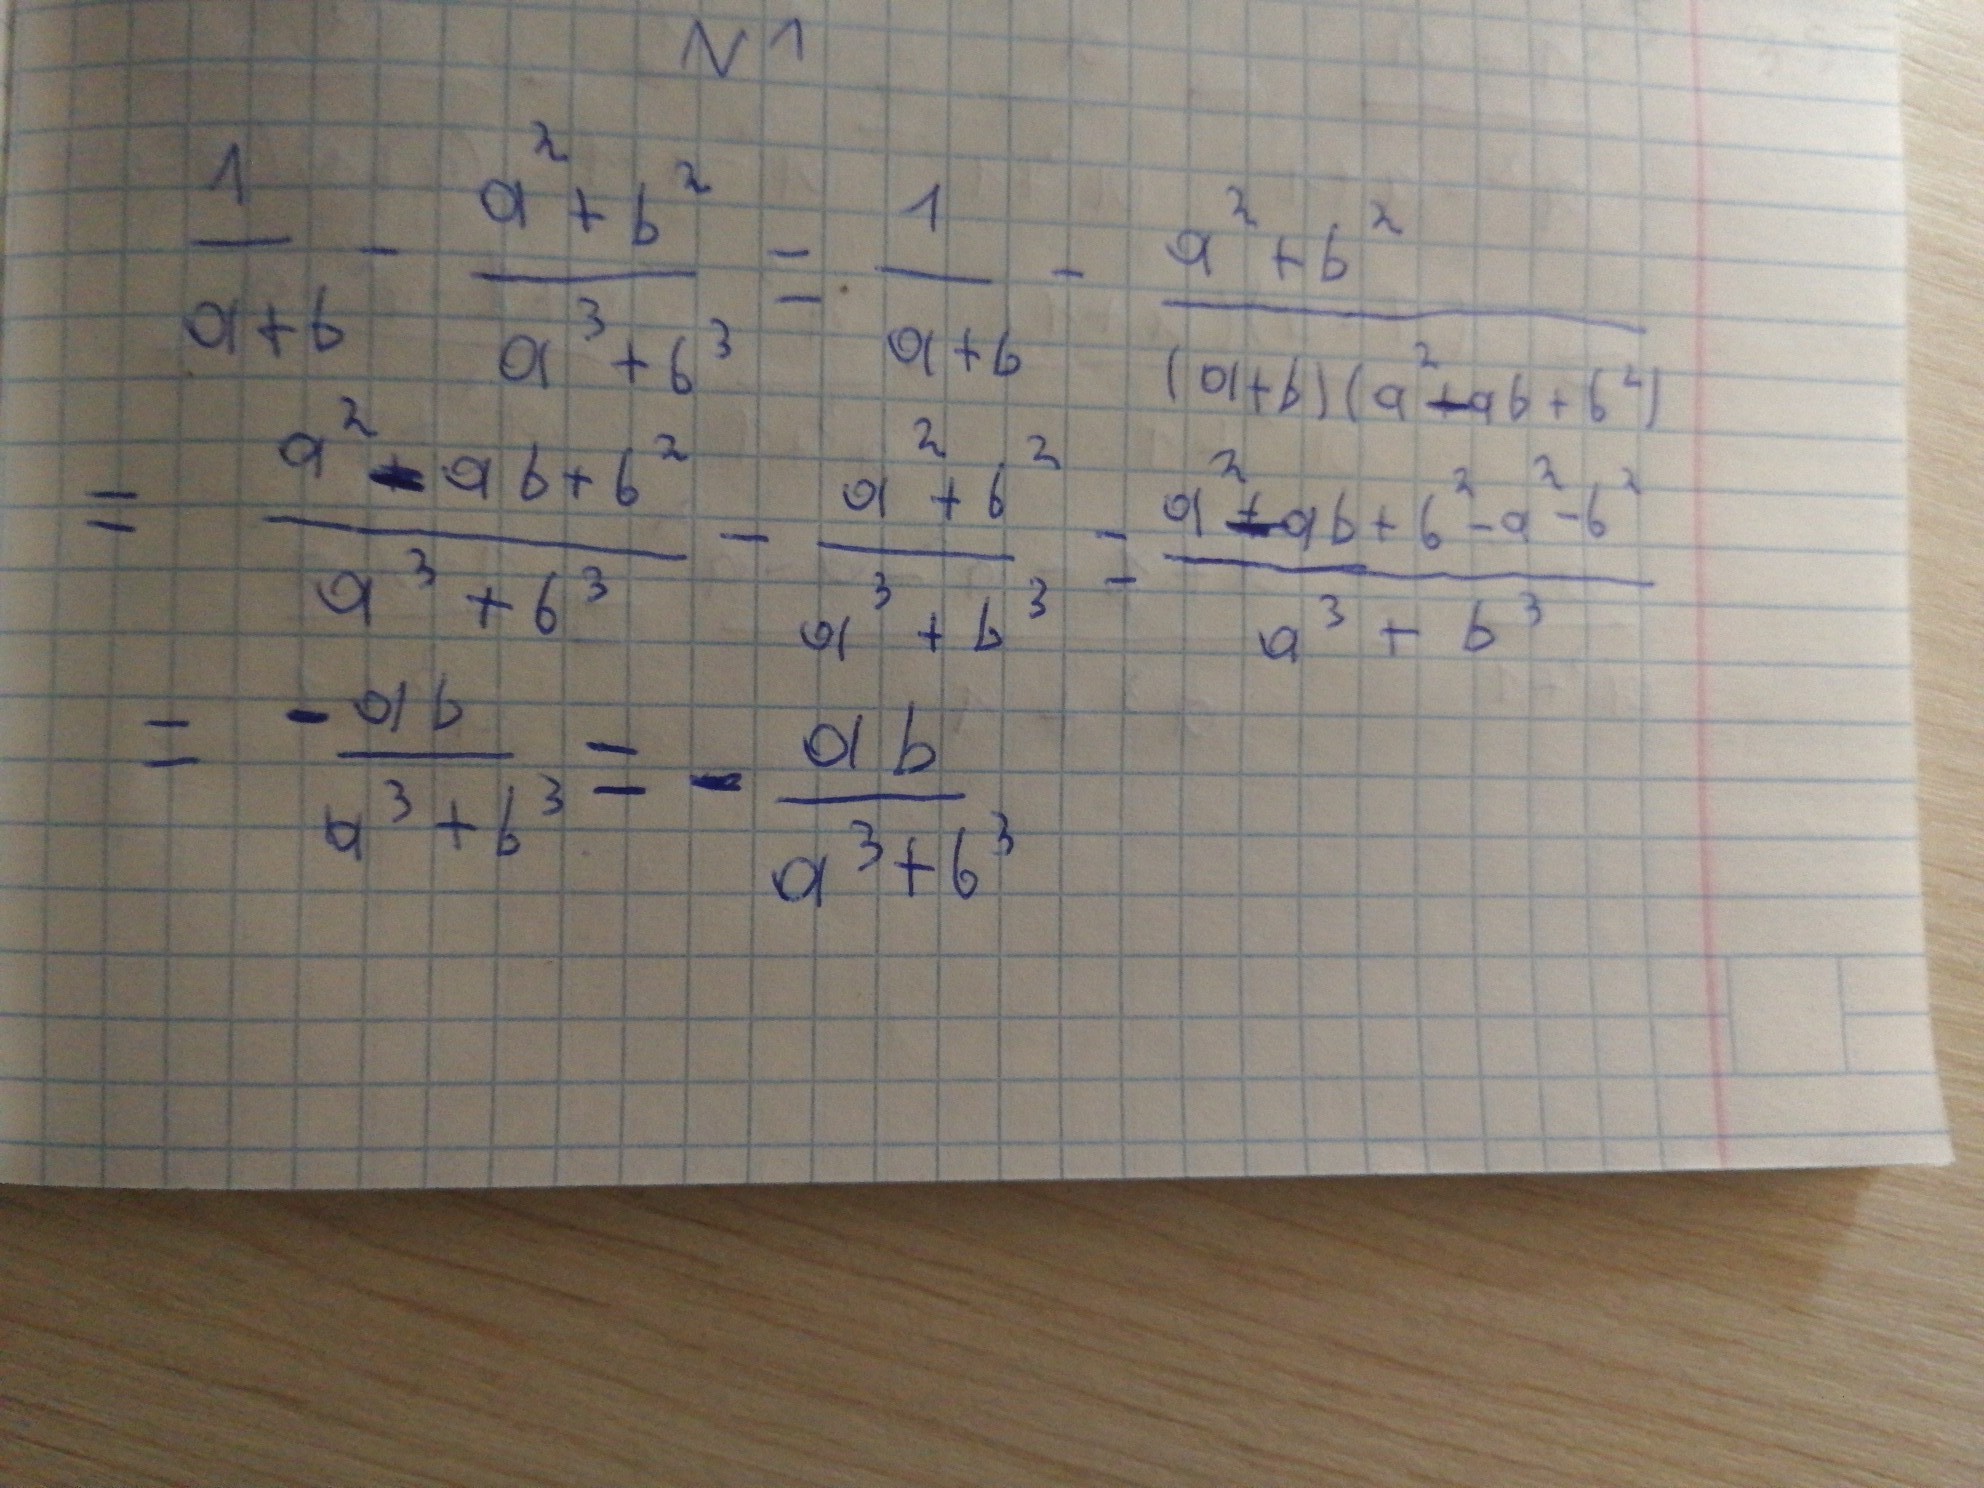 N1
1/(a+b) - (a²+b²)/(a³+b³) = 1/(a+b) - (a²+b²)/((a+b)(a²-ab+b²))
= (a²-ab+b²)/(a³+b³) - (a²+b²)/(a³+b³) = (a²-ab+b²-a²-b²)/(a³+b³)
= -ab/(a³+b³) = - ab/(a³+b³)